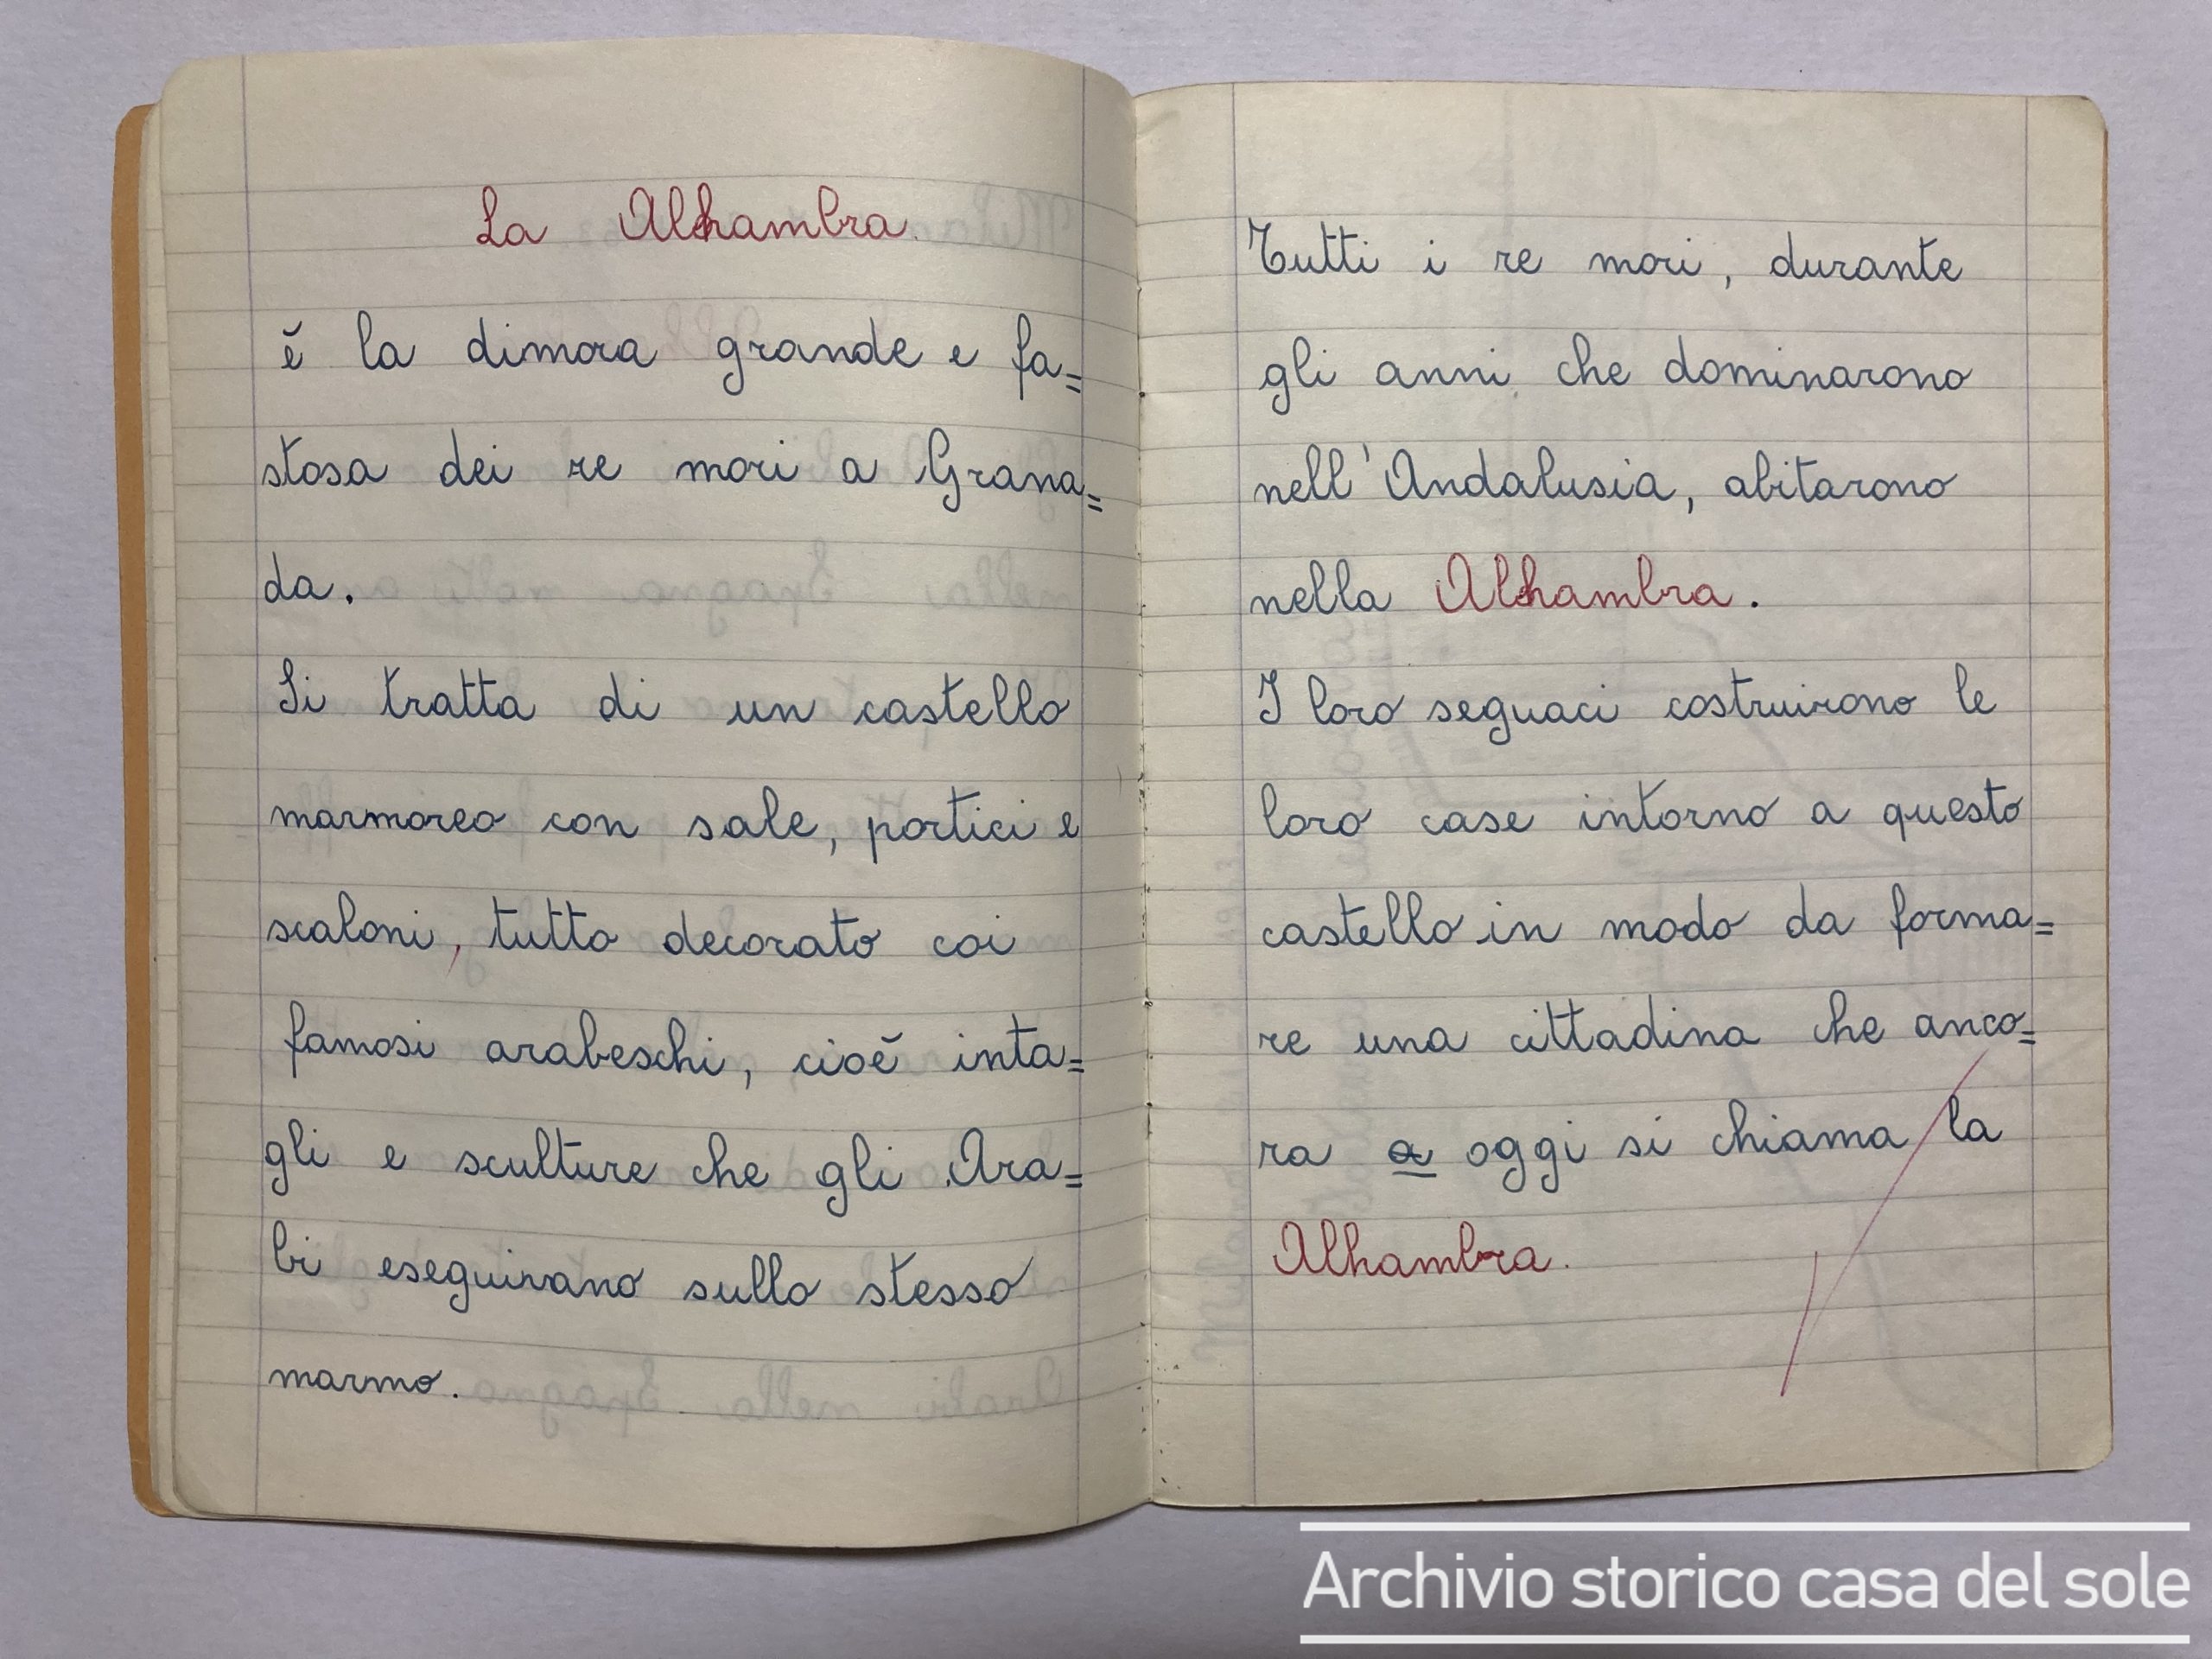 La Alhambra.
è la dimora grande e fa=
stosa dei re mori a Grana=
da.
Si tratta di un castello
marmoreo con sale, portici e
scaloni, tutto decorato coi
famosi arabeschi, cioè inta=
gli e sculture che gli Ara=
bi eseguivano sullo stesso
marmo.
Tutti i re mori, durante
gli anni che dominarono
nell'Andalusia, abitarono
nella Alhambra.
I loro seguaci costruirono le
loro case intorno a questo
castello in modo da forma=
re una cittadina che anco=
ra a oggi si chiama la
Alhambra.
Archivio storico casa del sole